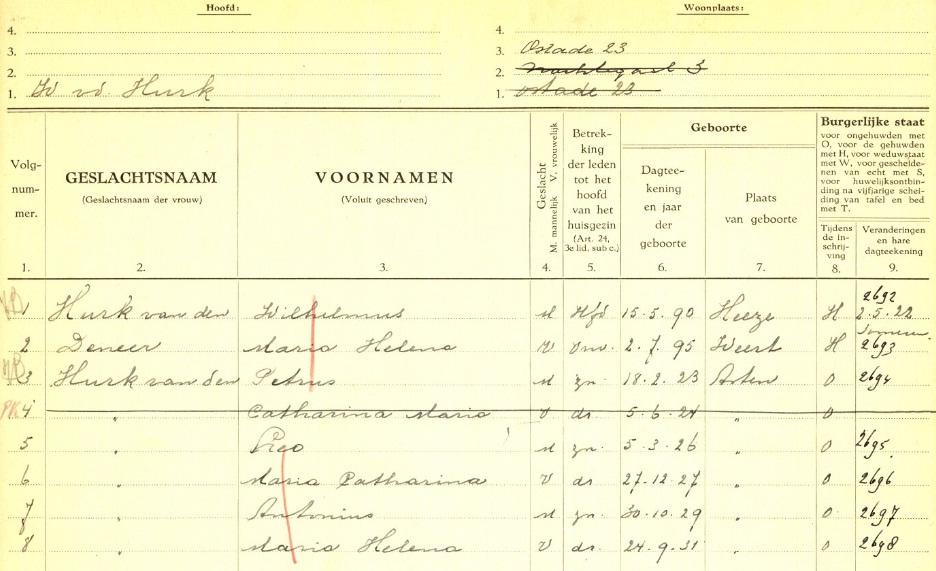 Hoofd: Woonplaats:
4. 4.
3. 3. Ostade 23
2. 2. Nachtegaal 3
1. W vd Hurk 1. Ostade 23
Volg-
num-
mer.
GESLACHTSNAAM
(Geslachtsnaam der vrouw)
VOORNAMEN
(Voluit geschreven)
Geslacht
M. mannelijk V. vrouwelijk
Betrek-
king
der leden
tot het
hoofd
van het
huisgezin
(Art. 24,
3e lid, sub c.)
Geboorte
Dagtee-
kening
en jaar
der
geboorte
Plaats
van geboorte
Burgerlijke staat
voor ongehuwden met
O, voor de gehuwden
met H, voor weduwstaat
met W, voor gescheide-
nen van echt met S,
voor huwelijksontbin-
ding na vijfjarige schei-
ding van tafel en bed
met T.
Tijdens
de in-
schrij-
ving
Veranderingen
en hare
dagteekening
1. 2. 3. 4. 5. 6. 7. 8. 9.
2692
1 Hurk van den Wilhelmus M Hfd 15.5.90 Heeze H 2.5.22
Someren
2 Deneer Maria Helena V Omv. 2.7.95 Weert H 2693
3 Hurk van den Petrus M zn. 18.2.23 Asten O 2694
PK 4 " Catharina Maria V dr. 5.6.24 " O
5 " M zn. 5.3.26 " O 2695
6 " Maria Catharina V dr 27.12.27 " O 2696
7 " Antonius M zn. 30.10.29 " O 2697
8 " Maria Helena V dr. 24.9.31 " O 2698